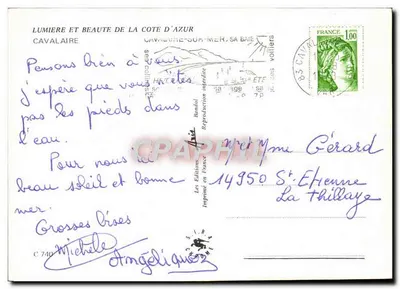 LUMIERE ET BEAUTE DE LA COTE D'AZUR
CAVALAIRE
Pensons bien à vous
j'espère que vous n'êtes
pas les pieds dans
l'eau.
Pour nous ici
beau soleil et bonne
mer.
Grosses bises
Michèle
Angélique
C 740
CAVALAIRE-SUR-MER, SA BAIE
voiliers
ETE
FRANCE
1,00
63 CAVAL
Les Editions "Aris" Bandol
Imprimé en France
Reproduction interdite
CPAPHIL
Mr Mme Gérard
14950 St-Etienne
La Thillaye